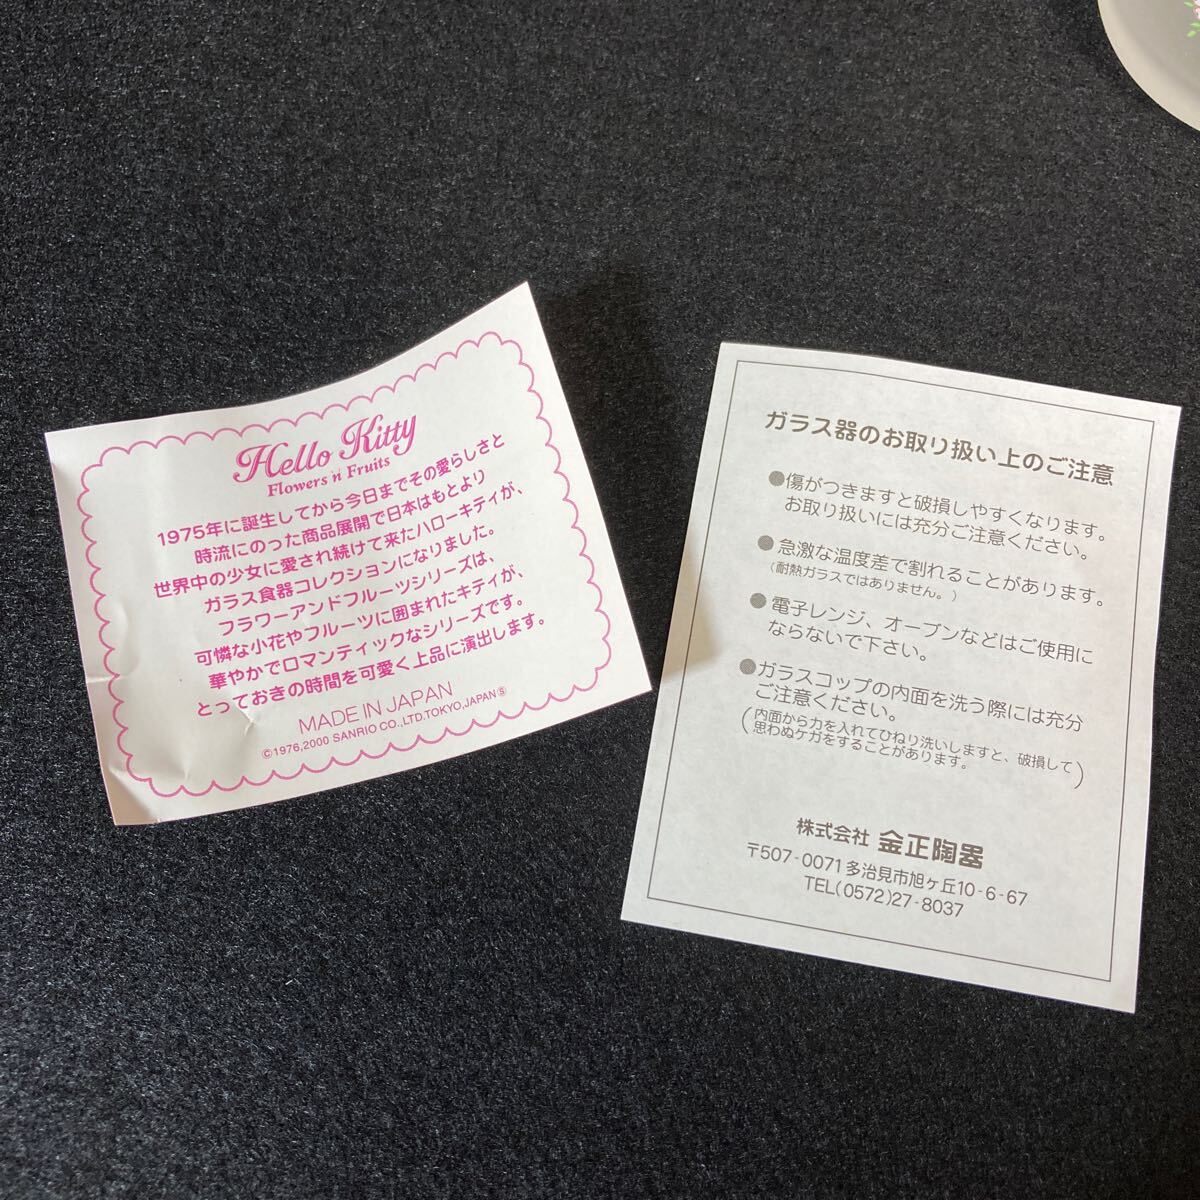 Hello Kitty
Flowers 'n' Fruits
1975年に誕生してから今日までその愛らしさと
時流にのった商品展開で日本はもとより
世界中の少女に愛され続けて来たハローキティが、
ガラス食器コレクションになりました。
フラワーアンドフルーツシリーズは、
可憐な小花やフルーツに囲まれたキティが、
華やかでロマンティックなシリーズです。
とっておきの時間を可愛く上品に演出します。
MADE IN JAPAN
©1976,2000 SANRIO CO.,LTD.TOKYO,JAPAN Ⓢ
ガラス器のお取り扱い上のご注意
●傷がつきますと破損しやすくなります。
お取り扱いには充分ご注意ください。
●急激な温度差で割れることがあります。
(耐熱ガラスではありません。)
●電子レンジ、オーブンなどはご使用に
ならないで下さい。
●ガラスコップの内面を洗う際には充分
ご注意ください。
(内面から力を入れてひねり洗いしますと、破損して
思わぬケガをすることがあります。)
株式会社 金正陶器
〒507-0071 多治見市旭ヶ丘10-6-67
TEL(0572)27-8037